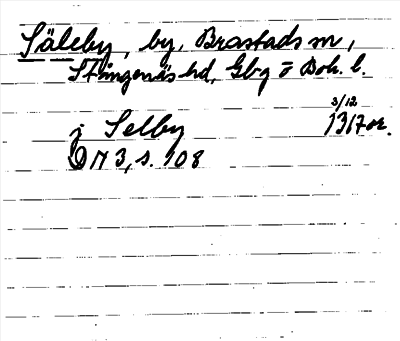 Säleby, by, Brastads sn,
Stångenäs hd, Gbg o Boh. l.
3/12
j Selby 1317 or.
DN 3, s. 108